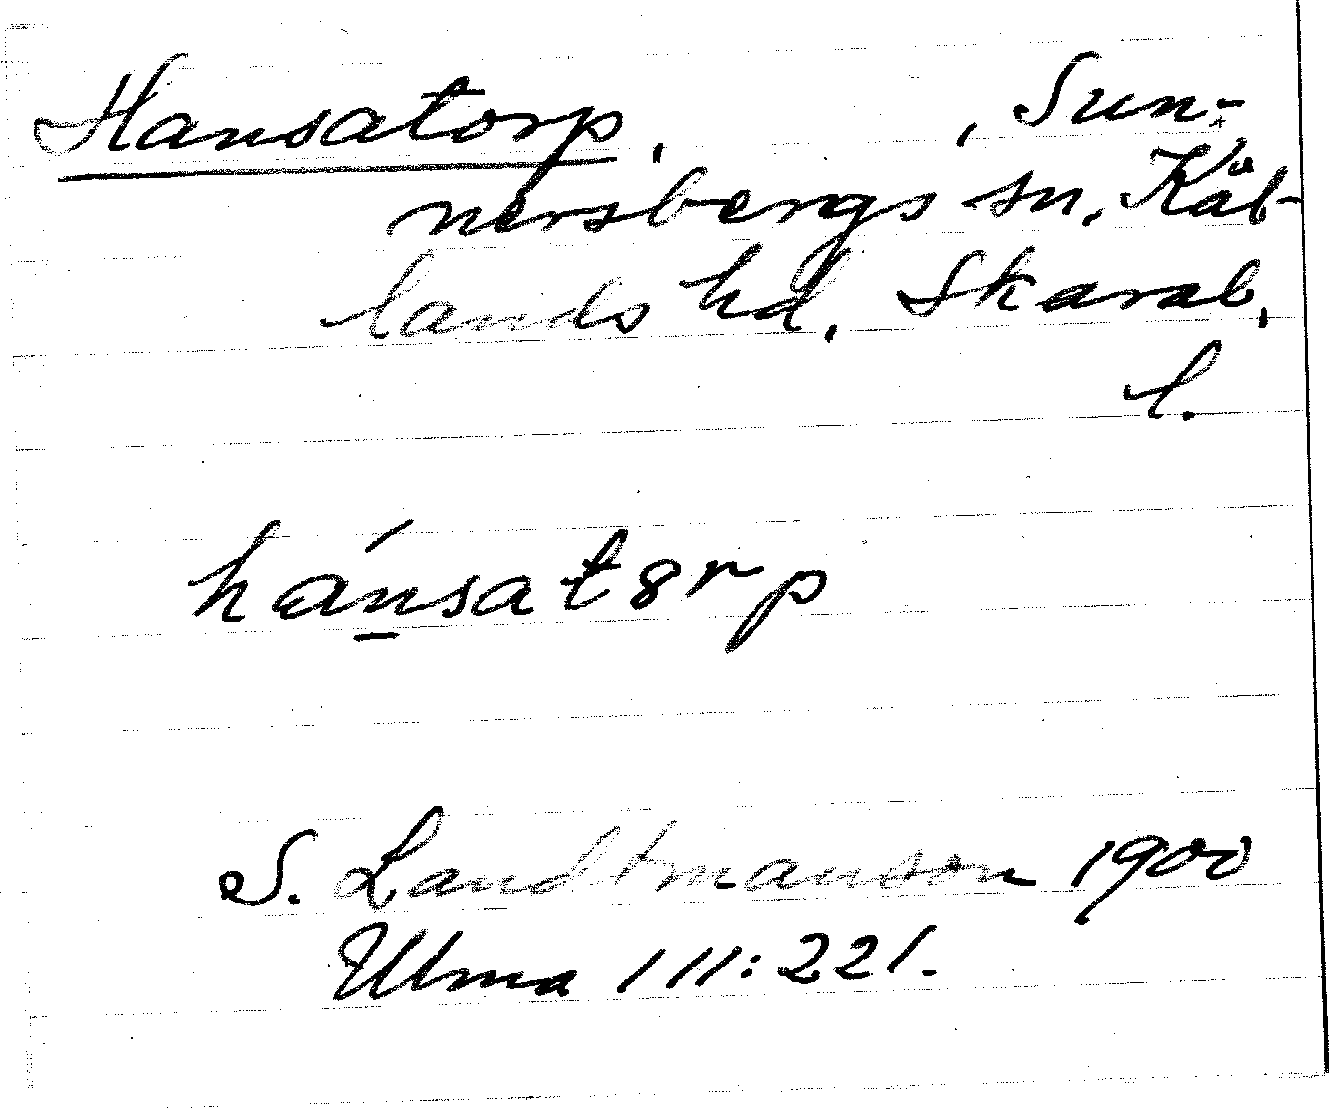 Hansatorp, , Sun-
nersbergs sn, Kål-
lands hd. Skarab.
l.
hánsat8rp
S. Landtmanson 1900
Ulma 111:221.